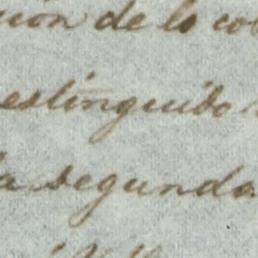 cion de lo cob
estinguido
la segunda